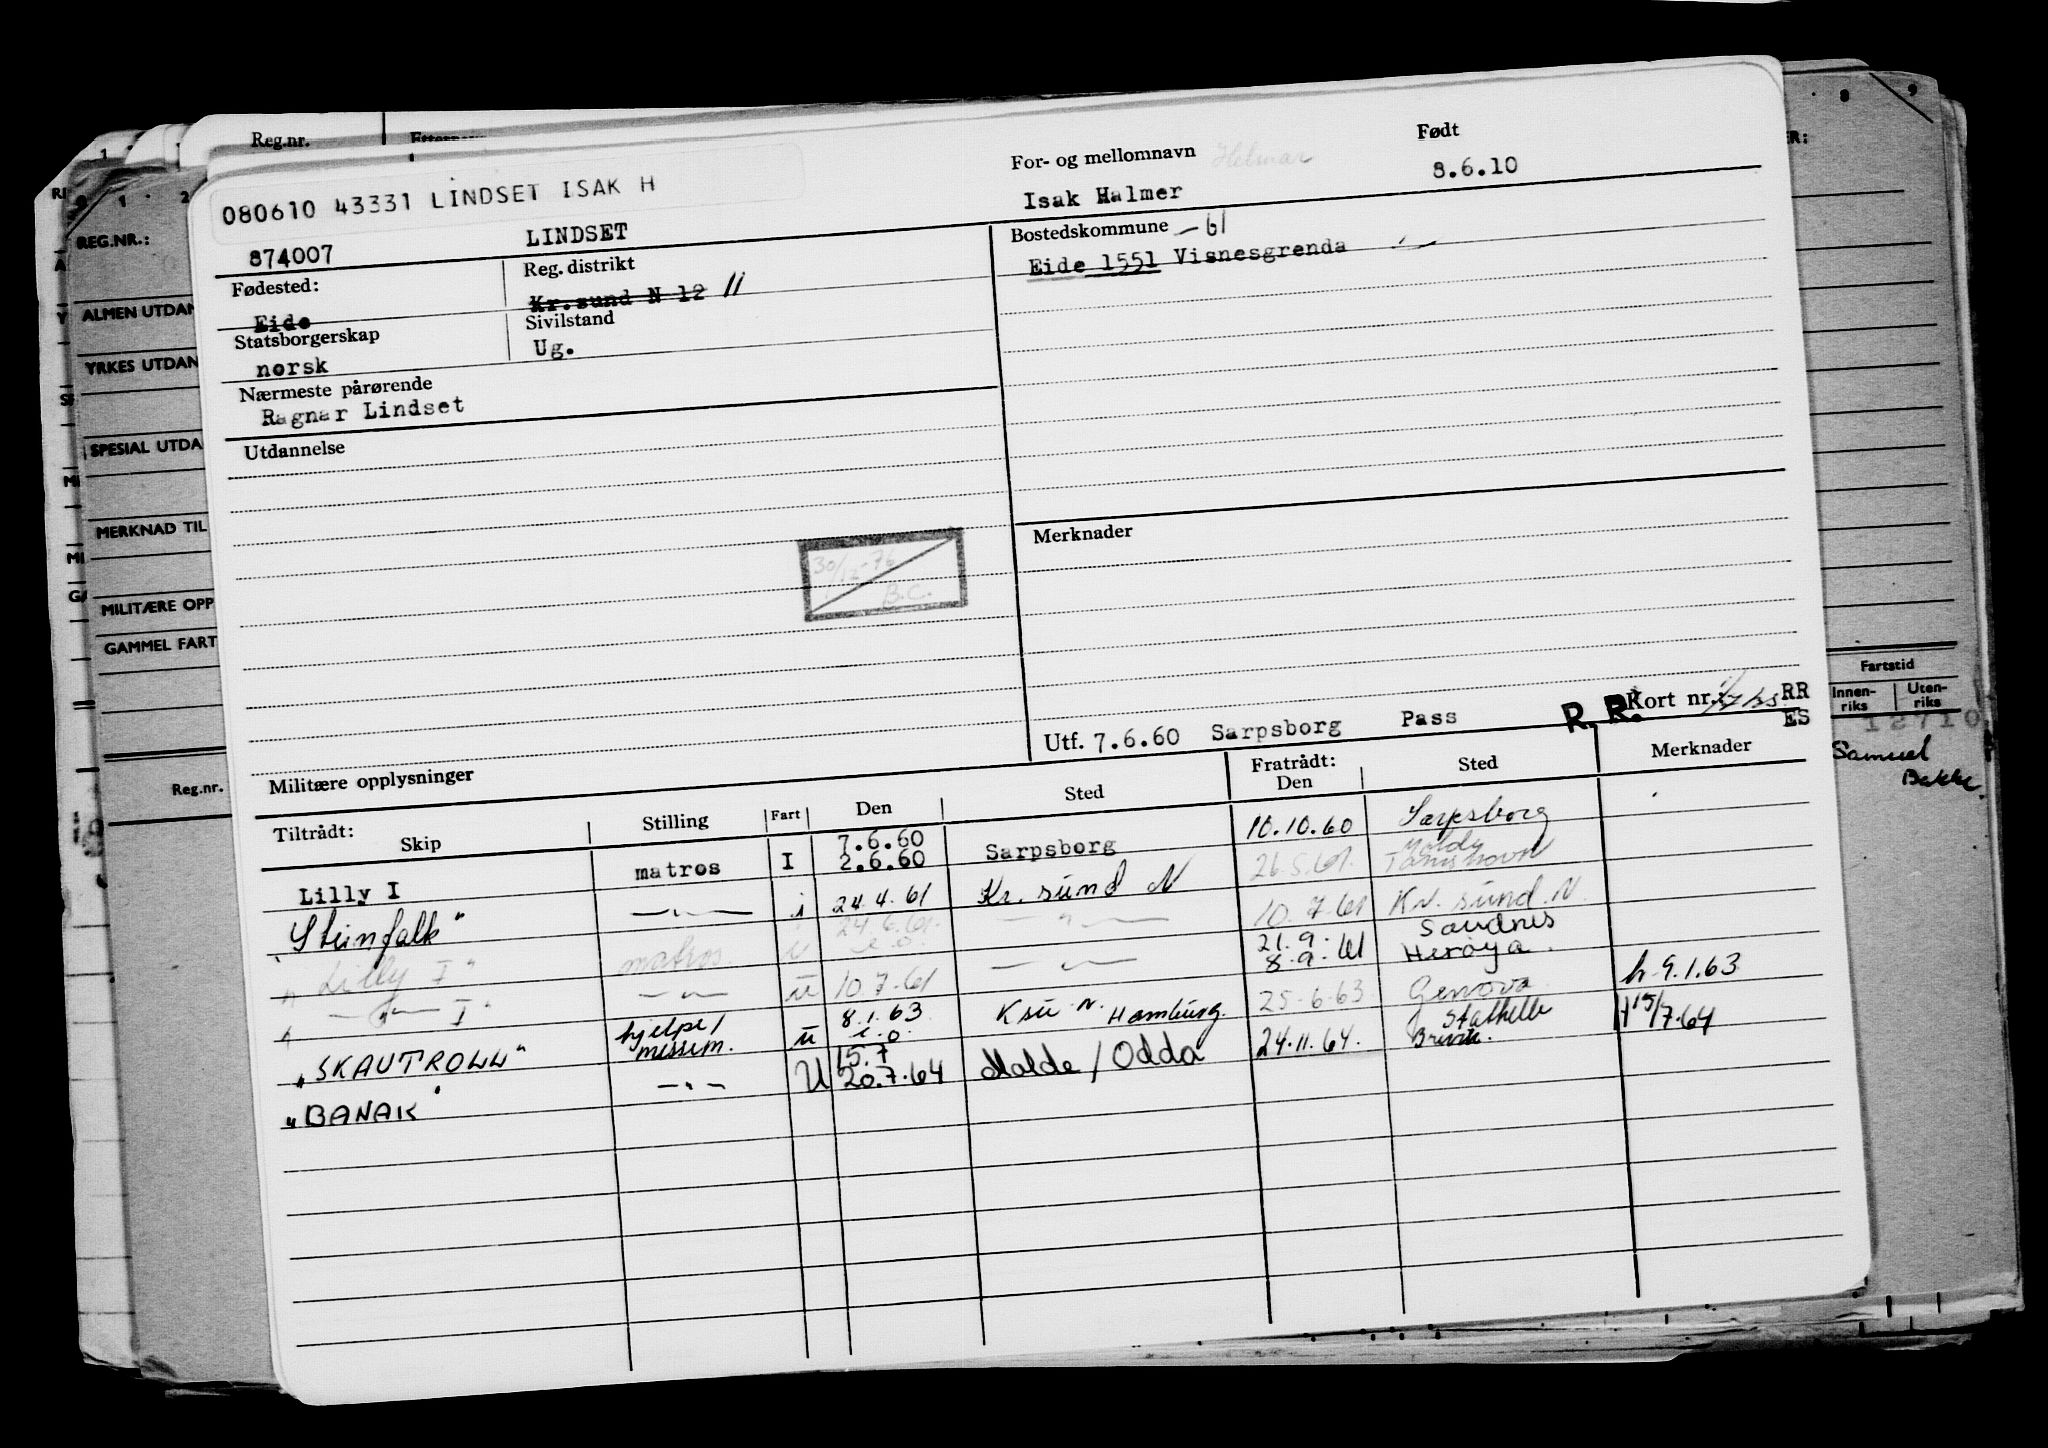 Reg.nr.
080610 43331 LINDSET ISAK H
For- og mellomnavn Helmar
Født
874007 LINDSET Isak Halmer 8.6.10
Fødested: Reg. distrikt Bostedskommune -61
Eide Kr.sund N 12 11 Eide 1551 Visnesgrenda
Statsborgerskap Sivilstand
norsk Ug.
Nærmeste pårørende
Ragnar Lindset
Utdannelse
30/12-76 B.C.
Merknader
Utf. 7.6.60 Sarpsborg Pass R. R. Kort nr. RR
ES
Militære opplysninger
Tiltrådt: Fratrådt:
Skip Stilling Fart Den Sted Den Sted Merknader
Lilly I matros I 7.6.60 2.6.60 Sarpsborg 10.10.60 Sarpsborg
"Steinfalk" —"— i 24.4.61 Kr. sund N 26.5.61 Molde
"Lilly I" matros u 24.6.61 e.o. —"— 10.7.61 Kr. sund N
" —"— I" —"— u 10.7.61 —"— 21.9. 8.9.61 Sandnes Herøya
"SKAUTROLL" hjelpe/ messem. u 8.1.63 e.o. Ksu N. Hamburg. 25.6.63 Genova h 9.1.63
"BANAK" —"— U 15.7 20.7.64 Molde / Odda 24.11.64. Stathelle Brevik. 15/7.64
REG.NR.:
ALMEN UTDAN
YRKES UTDAN
SPESIAL UTDA
MERKNAD TIL
MILITÆRE OPP
GAMMEL FART
Reg.nr.
8 9
Fartstid
Innen-
riks
Uten-
riks
Samuel
Bakke.